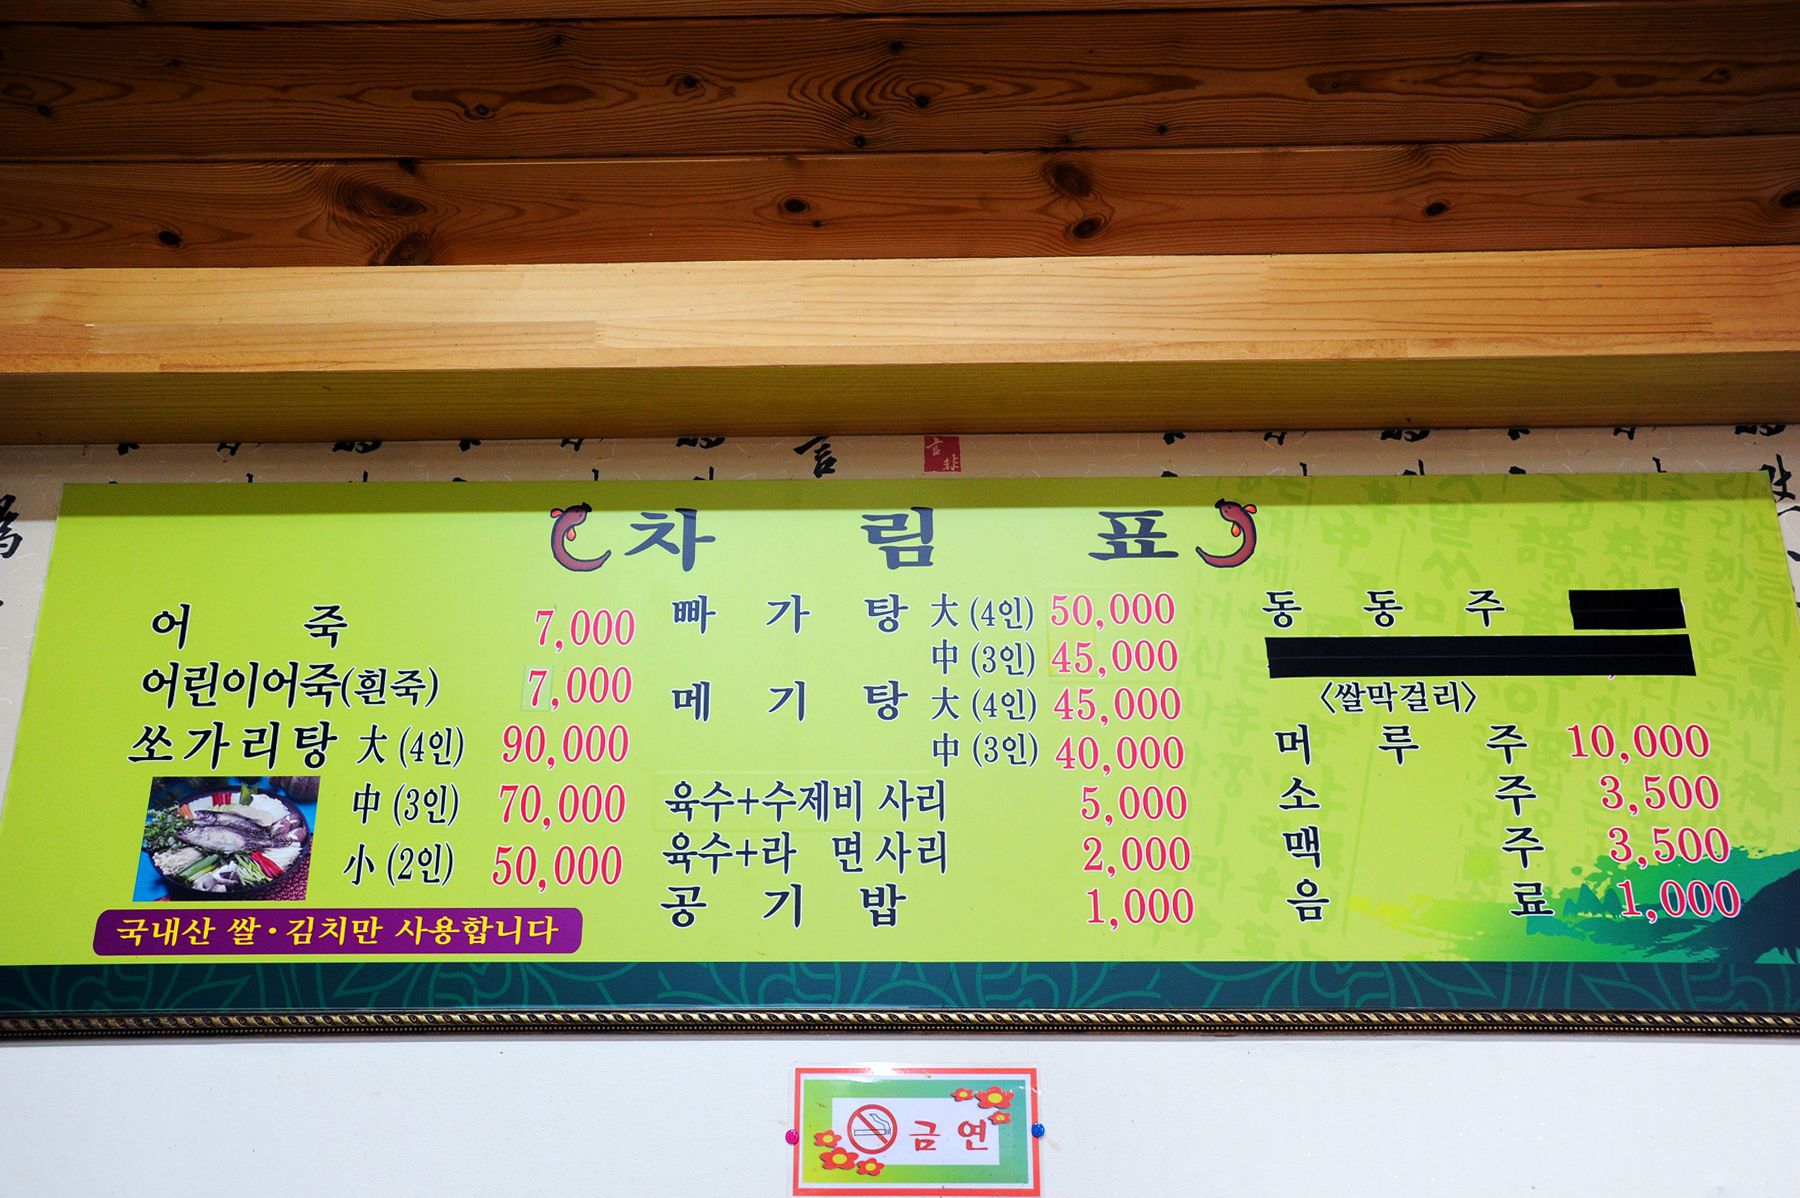 차림표
어죽 7,000
어린이어죽(흰죽) 7,000
쏘가리탕 大 (4인) 90,000
中 (3인) 70,000
小 (2인) 50,000
국내산 쌀·김치만 사용합니다
빠가탕 大 (4인) 50,000
中 (3인) 45,000
메기탕 大 (4인) 45,000
中 (3인) 40,000
육수+수제비 사리 5,000
육수+라면사리 2,000
공기밥 1,000
동동주
〈쌀막걸리〉
머루주 10,000
소주 3,500
맥주 3,500
음료 1,000
금연